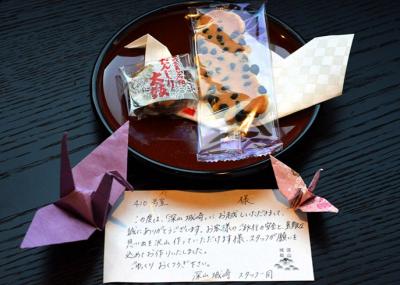 太鼓
410 号室 様
この度は、「深山 城崎」にお越しいただきまして、
誠にありがとうございます。お客様のご旅行の安全と、素敵な
思い出を沢山作っていただけます様、スタッフが願いを
込めてお作りいたしました。
ごゆっくり おくつろぎ下さい。
深山 城崎 スタッフ一同